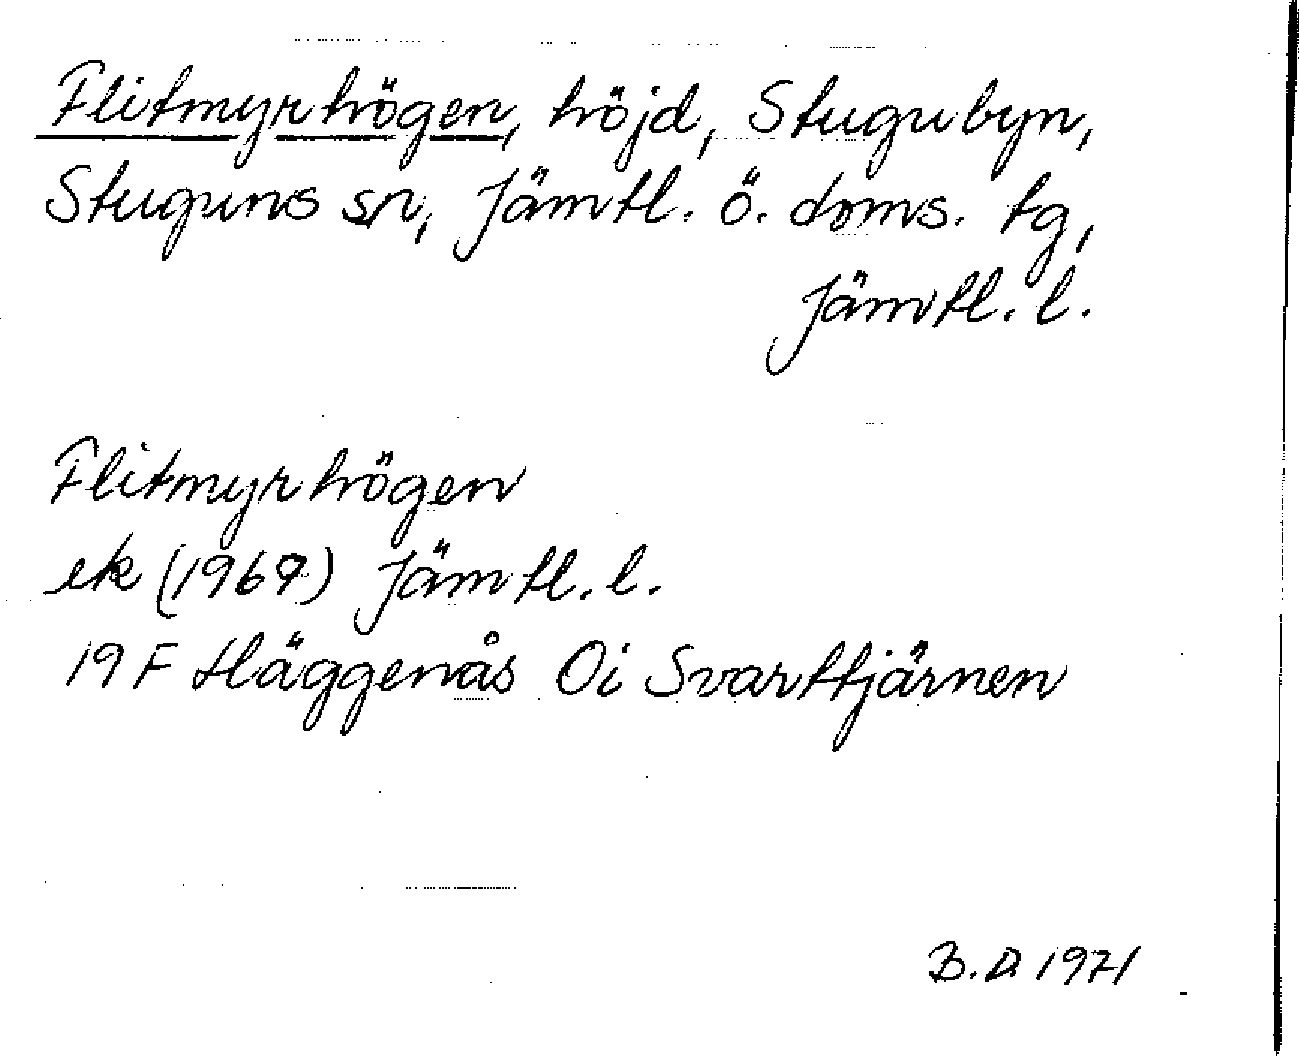 Flitmyrhögen, höjd, Stugubyn,
Stuguns sn, Jämtl. ö. doms. tg,
Jämtl. l.
Flitmyrhögen
ek (1967) Jämtl. l.
19 F Häggenås Oi Svarttjärnen
B.D. 1971